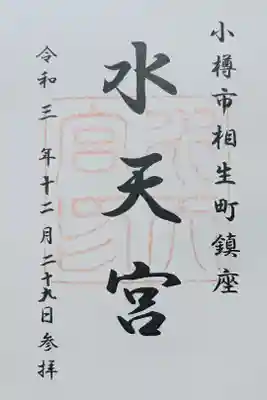 小樽市相生町鎮座
水天宮
令和三年十二月二十九日参拝